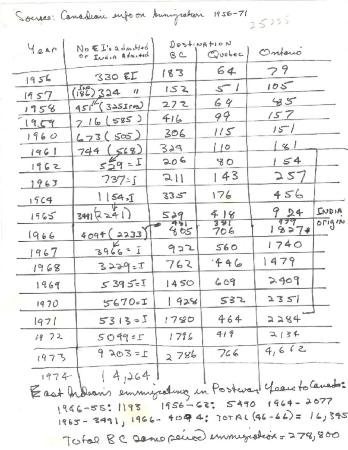 Source: Canadian info on Immigration 1956-71
Year No E I's admitted or India Admitted DESTINATION BC Quebec Ontario
1956 330 EI 183 64 79
1957 (186) 324 " 152 51 105
1958 451 (325 from) 272 69 85
1959 716 (585) 416 99 157
1960 673 (505) 306 115 151
1961 744 (568) 329 110 181
1962 529=I 206 80 154
1963 737=I 211 143 257
1964 1154=I 335 176 456
1965 3491(2241) 529 418 924 INDIA
491 391 979 origin
1966 4094 (2233) 805 706 1827
1967 3966=I 922 560 1740
1968 3229=I 762 446 1479
1969 5395=I 1450 609 2909
1970 5670=I 1928 532 2351
1971 5313=I 1780 464 2284
1972 5099=I 1796 419 2134
1973 9203=I 2786 766 4,662
1974 - 14,264)
East Indians immigrating in Postwar Years to Canada:
1946-55: 1193 1956-63: 5490 1964-2077
1965-3491, 1966-4094; TOTAL (46-66) = 16,345
Total BC same period immigration = 278,800